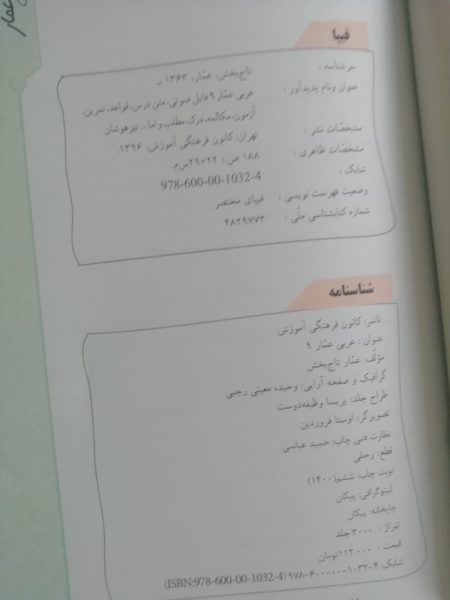 عمار
فیپا
سرشناسه : تاج‌بخش، عمّار، ۱۳۶۳ ـ
عنوان ونام پدیدآور : عربی عمّار ۹ فایل صوتی، متن درس، قواعد، تمرین،
آزمون، مکالمه، درک مطلب و اما ... تیزهوشان
مشخصّات نشر : تهران: کانون فرهنگی آموزش، ۱۳۹۶.
مشخصّات ظاهری : ۱۸۸ ص.؛ ۲۲×۲۹س‌م.
شابک : 978-600-00-1032-4
وضعیت فهرست نویسی : فیپای مختصر
شماره کتابشناسی ملّی : ۴۸۲۹۷۷۳
شناسنامه
ناشر: کانون فرهنگی آموزش
عنوان : عربی عمّار ۹
مؤلّف: عمّار تاج‌بخش
گرافیک و صفحه آرایی: وحیده معینی رجبی
طراح جلد: پریسا وظیفه‌دوست
تصویرگر: اوستا فروردین
نظارت فنی چاپ: حمید عباسی
قطع: رحلی
نوبت چاپ: ششم(۱۴۰۰)
لیتوگرافی: پیکان
چاپخانه: پیکان
تیراژ : ۳۰۰۰ جلد
قیمت : ۱۱۲,۰۰۰تومان
شابک: ۴-۱۰۳۲-۰۰-۶۰۰-۹۷۸ (ISBN:978-600-00-1032-4)